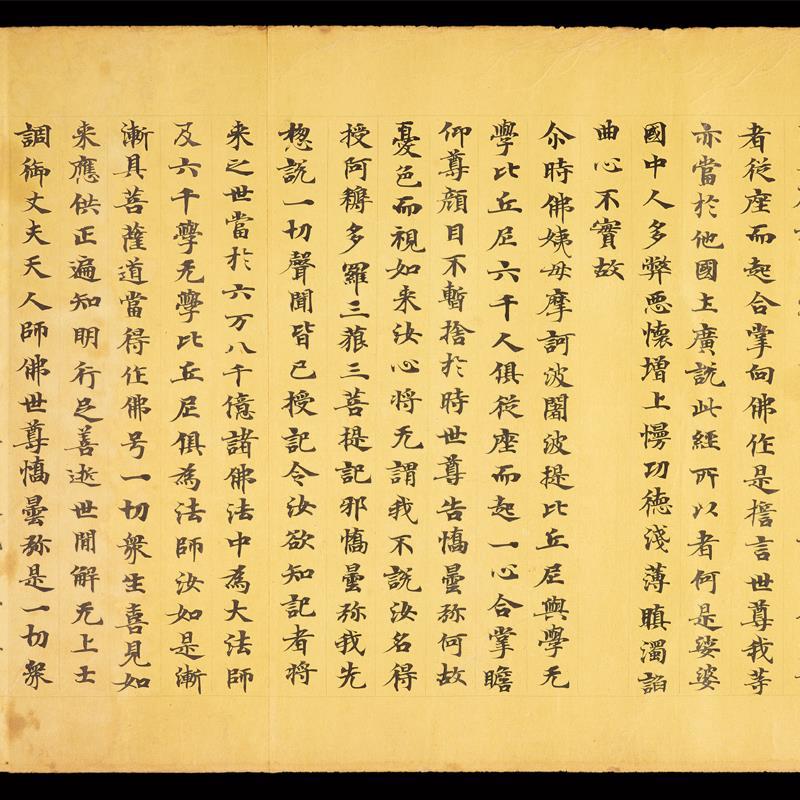 者從座而起合掌向佛作是誓言世尊我等
亦當於他國土廣說此經所以者何是娑婆
國中人多弊惡懷增上慢功德淺薄瞋濁諂
曲心不實故
尒時佛姨母摩訶波闍波提比丘尼與學无
學比丘尼六千人俱從座而起一心合掌瞻
仰尊顏目不暫捨於時世尊告憍曇弥何故
憂色而視如来汝心将无謂我不說汝名得
授阿耨多羅三藐三菩提記邪憍曇弥我先
惣說一切聲聞皆已授記令汝欲知記者将
来之世當於六万八千億諸佛法中為大法師
及六千學无學比丘尼俱為法師汝如是漸
漸具菩薩道當得作佛号一切衆生喜見如
来應供正遍知明行足善逝世間解无上士
調御丈夫天人師佛世尊憍曇弥是一切衆